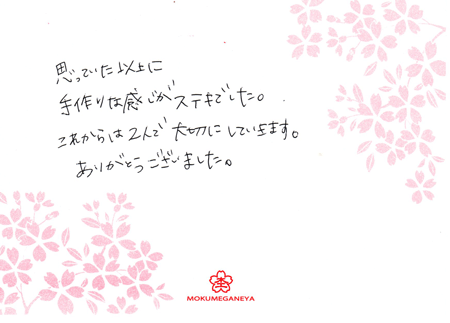 思っていた以上に
手作りな感じがステキでした。
これからは2人で大切にしていきます。
ありがとうございました。
MOKUMEGANEYA